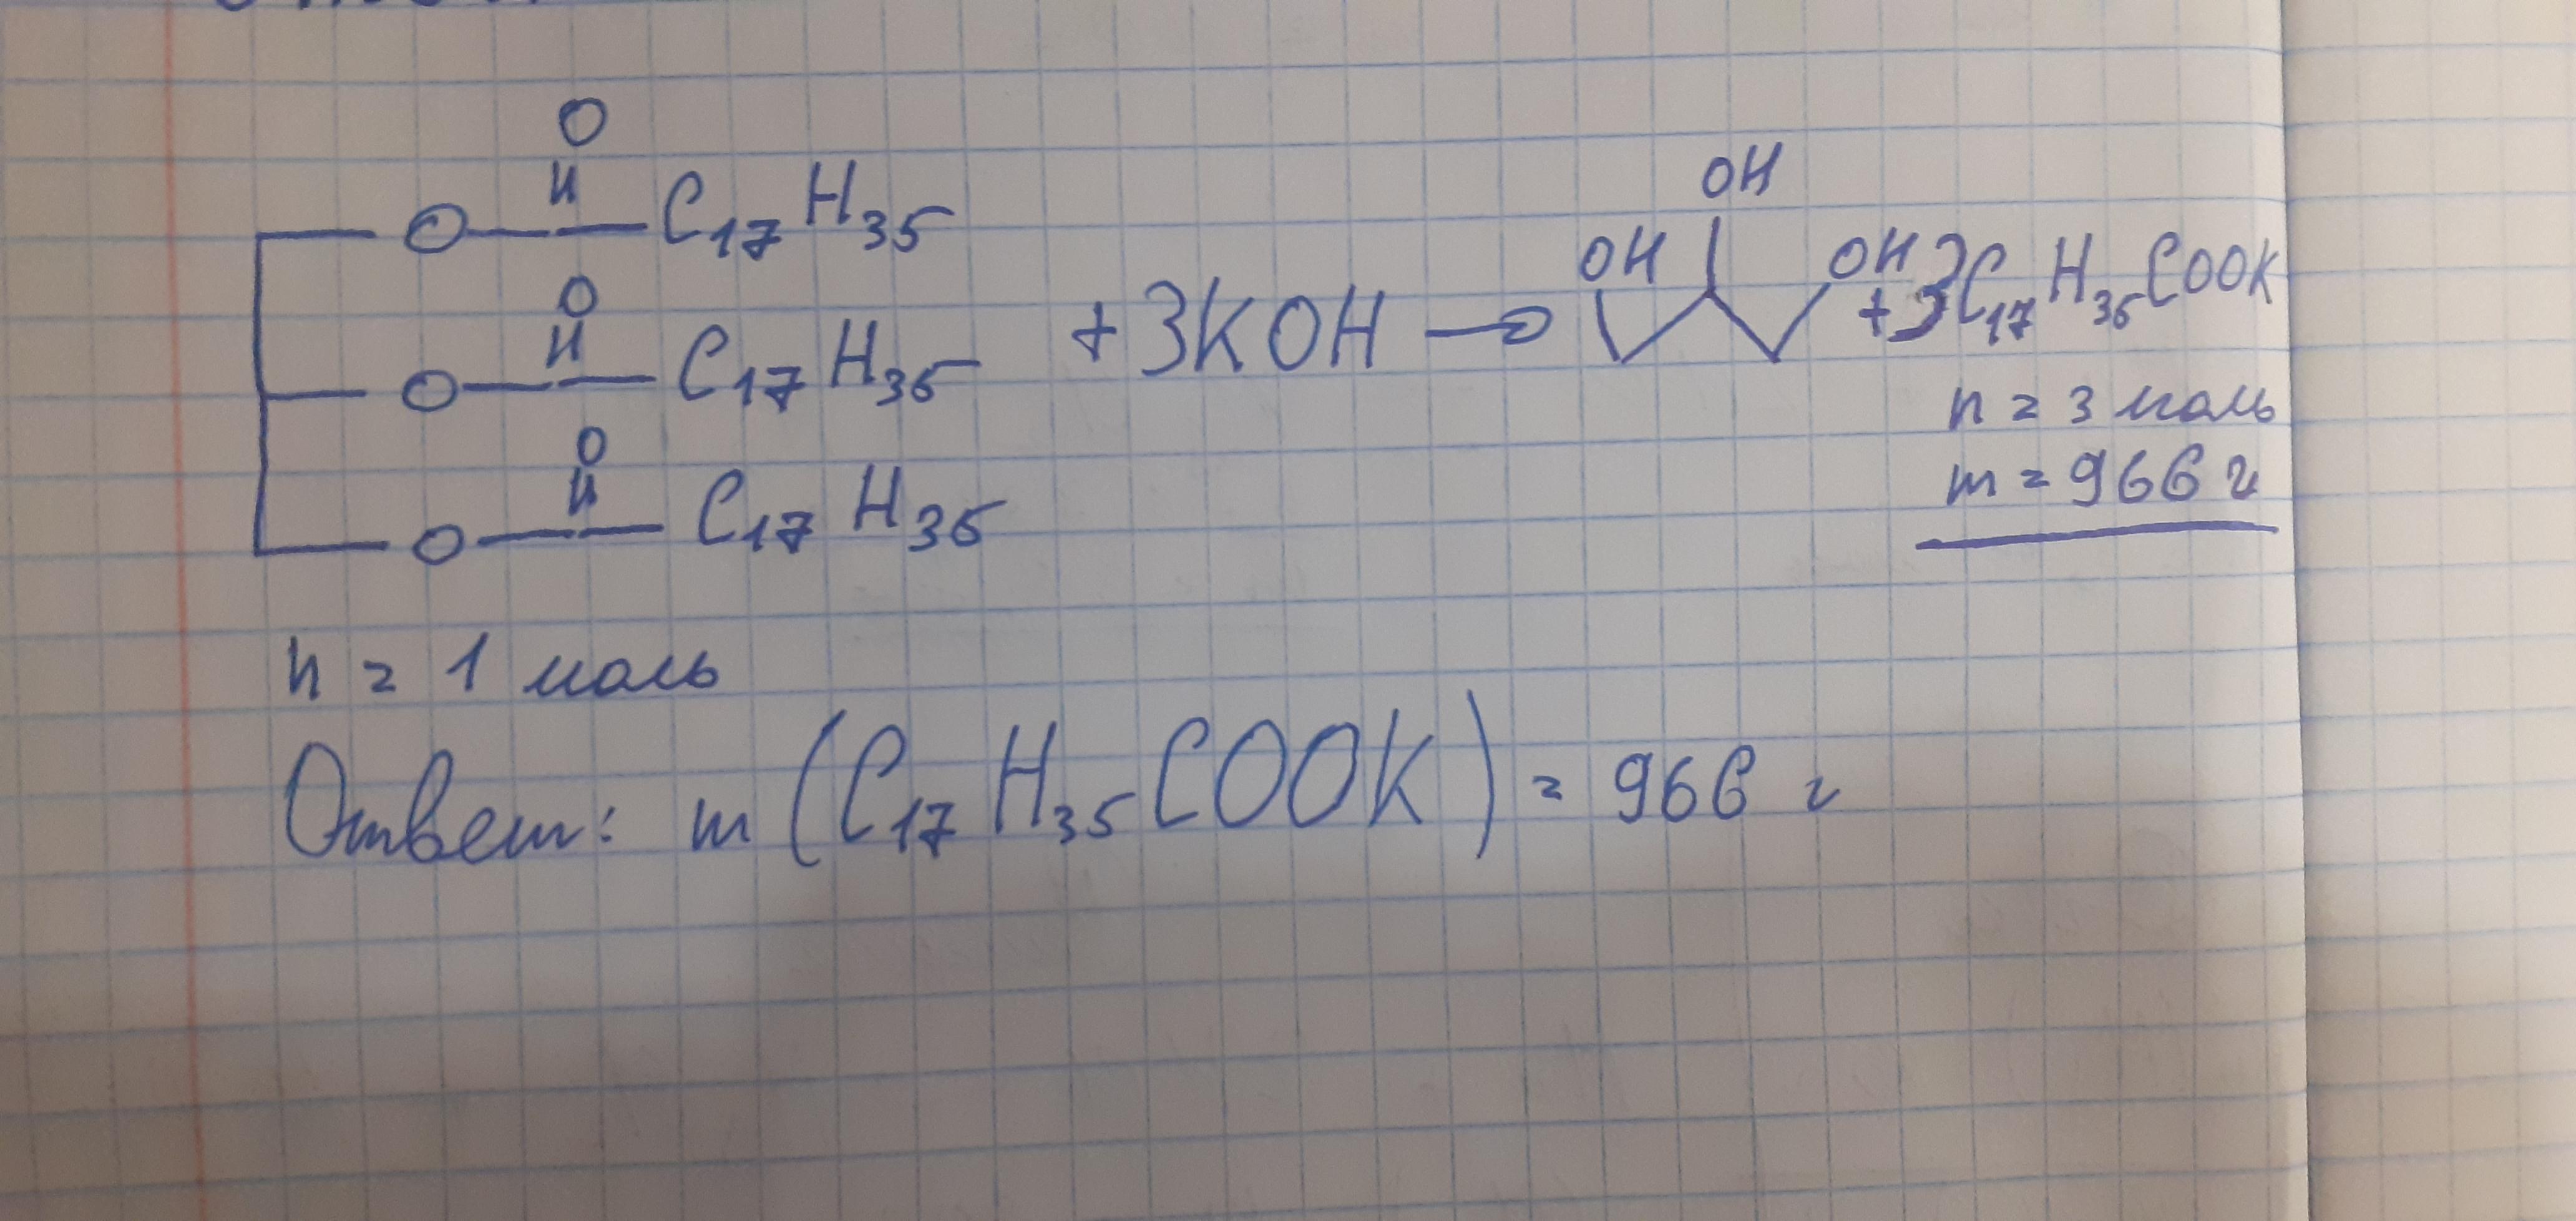 O
O — C₁₇H₃₅
O
O — C₁₇H₃₅
O
O — C₁₇H₃₅
+ 3KOH →
OH
OH OH + 3C₁₇H₃₅COOK
n = 3 моль
m = 966 г
n = 1 моль
Ответ: m (C₁₇H₃₅COOK) = 966 г